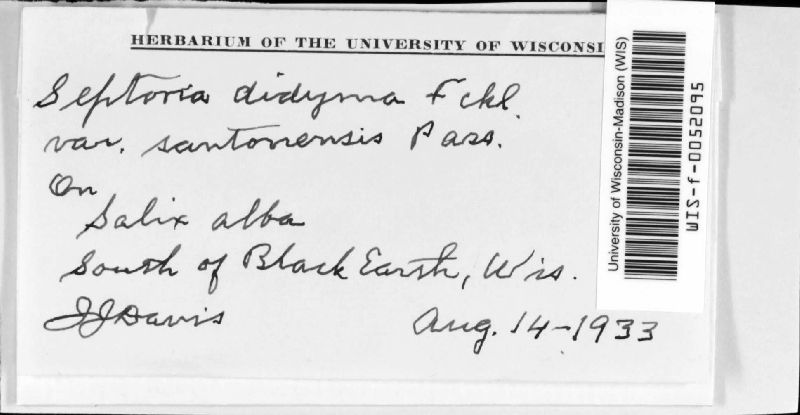 HERBARIUM OF THE UNIVERSITY OF WISCONSI
Septoria didyma Fckl.
var. santonensis Pass.
On
Salix alba
South of Black Earth, Wis.
JJDavis Aug. 14-1933
University of Wisconsin-Madison (WIS)
WIS-f-0052095